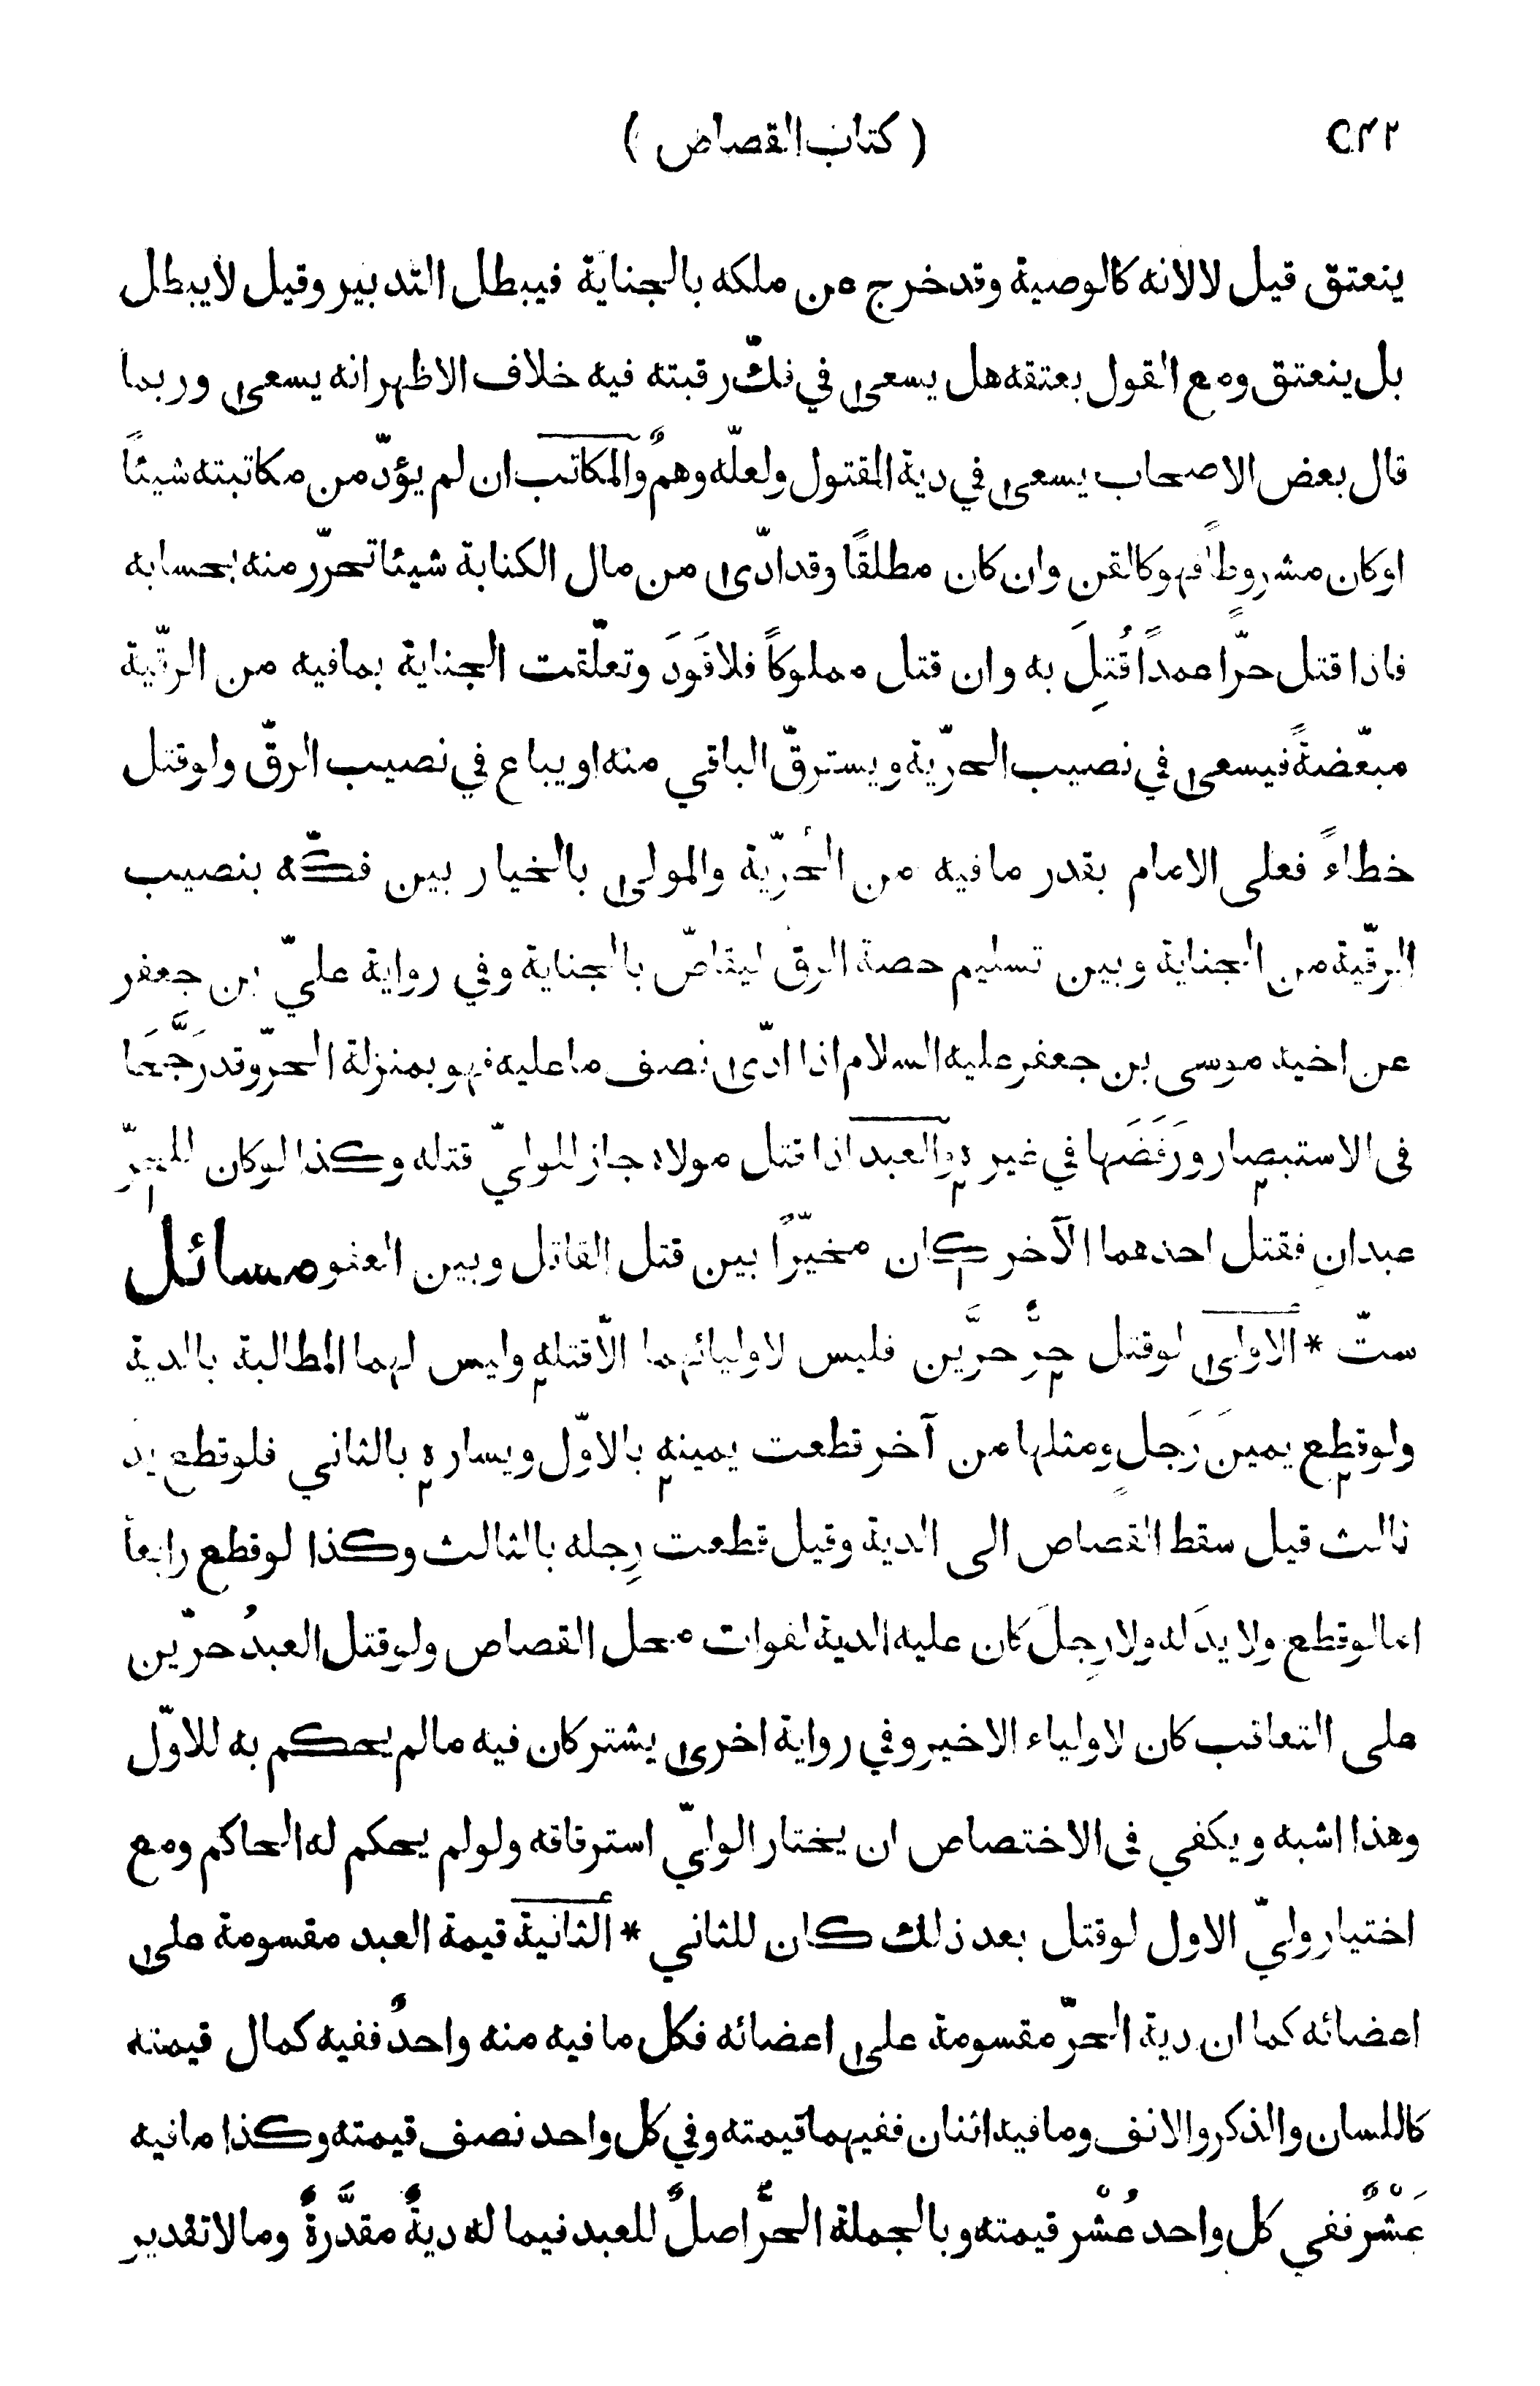 ٥٢٢ ( كتاب القصاص )
ينعتق قيل لا لانه كالوصية وقد خرج من ملكه بالجناية فيبطل التدبير وقيل لا يبطل
بل ينعتق ومع القول بعتقه هل يسعى في فكّ رقبته فيه خلاف الاظهر انه يسعى وربما
قال بعض الاصحاب يسعى في دية المقتول ولعلّه وهمٌ والمكاتب ان لم يؤدّ من مكاتبته شيئاً
او كان مشروطاً فهو كالقن وان كان مطلقًا وقد ادّى من مال الكتابة شيئا تحرّر منه بحسابه
فاذا قتل حرّا عمداً قُتِلَ به وان قتل مملوكاً فلا قَوَدَ وتعلّقت الجناية بمافيه من الرقّية
مبعّضةً فيسعى في نصيب الحرّية ويسترقّ الباقي منه او يباع في نصيب الرقّ ولو قتل
خطاءً فعلى الامام بقدر ما فيه من الحرّية والمولى بالخيار بين فكّه بنصيب
الرقّية من الجناية وبين تسليم حصة الرق ليقاصّ بالجناية وفي رواية عليّ بن جعفر
عن اخيه موسى بن جعفر عليه السلام اذا ادّى نصف ما عليه فهو بمنزلة الحرّ وقد رَجَّحَها
فى الاستبصار ورَفَضَها في غيره والعبد اذا قتل مولاه جاز للوليّ قتله وكذا لو كان للحرّ
عبدانِ فقتل احدهما الآخر كان مخيّرًا بين قتل القاتل وبين العفو مسائل
ستّ * الاولى لو قتل حرٌّ حرَّين فليس لاوليائهما الّا قتله وليس لهما المطالبة بالدية
ولو قطع يمينَ رَجلٍ ومثلها من آخر قطعت يمينه بالاوّل ويساره بالثاني فلو قطع يد
ثالث قيل سقط القصاص الى الدية وقيل قطعت رِجله بالثالث وكذا لو قطع رابعاً
اما لو قطع ولا يدَ له ولا رِجلَ كان عليه الدية لفوات محل القصاص ولو قتل العبدُ حرّين
على التعاقب كان لاولياء الاخير وفي رواية اخرى يشتركان فيه مالم يحكم به للاوّل
وهذا اشبه ويكفي فى الاختصاص ان يختار الوليّ استرقاقه ولو لم يحكم له الحاكم ومع
اختيار وليّ الاول لو قتل بعد ذلك كان للثاني * الثانية قيمة العبد مقسومة على
اعضائه كما ان دية الحرّ مقسومة على اعضائه فكل ما فيه منه واحدٌ ففيه كمال قيمته
كاللسان والذكر والانف وما فيه اثنان ففيهما قيمته وفي كل واحد نصف قيمته وكذا ما فيه
عَشْرٌ ففي كل واحد عُشْر قيمته وبالجملة الحرُّ اصلٌ للعبد فيما له ديةٌ مقدَّرةٌ وما لا تقدير